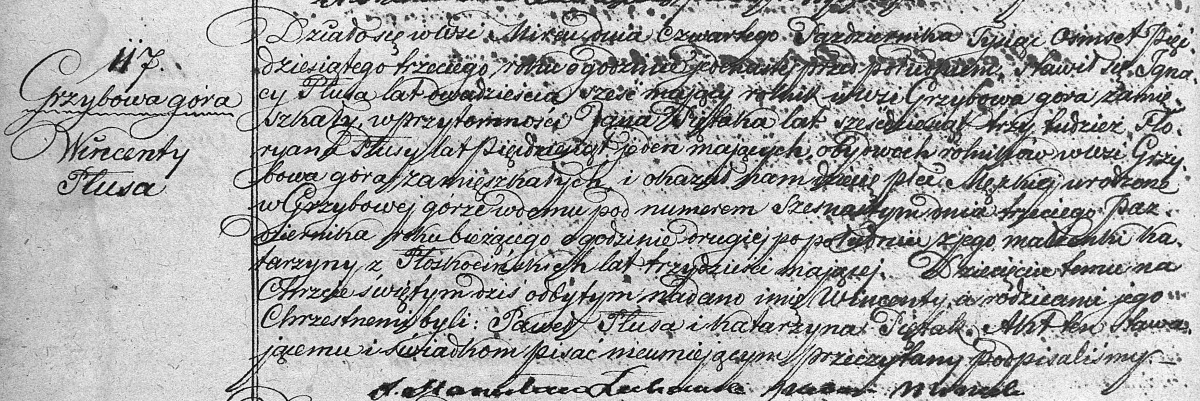 117.
Grzybowa góra
Wincenty
Tłusa
Działo się w wsi Mircu dnia Czwartego Października Tysiąc Ośmset Pięć
dziesiątego trzeciego roku o godzinie jedenastej przed południem. Stawił się Igna
cy Tłusa lat dwadzieścia sześć mający rolnik w wsi Grzybowa góra zamie
szkały, w przytomności Jana Piętaka lat sześćdziesiąt trzy tudzież Flo
ryana Tłusy lat Pięćdziesiąt jeden mających, obydwóch rolników w wsi Grzy
bowa góra zamieszkałych, i okazał nam dziecię płci Męzkiej urodzone
w Grzybowej górze w domu pod numerem Szesnastym dnia trzeciego Paź
dziernika roku bieżącego o godzinie drugiej po południu z jego małżonki Ka
tarzyny z Płoskocińskich lat trzydzieści mającej. Dziecięciu temu na
Chrzcie świętym dziś odbytym nadano imię Wincenty, a rodzicami jego
Chrzestnemi byli: Paweł Tłusa i Katarzyna Piętak. Akt ten stawa
jącemu i świadkom pisać nieumiejącym przeczytany podpisaliśmy.
X. Stanisław